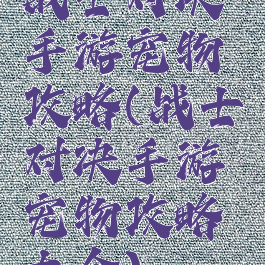 战士对决
手游宠物
攻略(战士
对决手游
宠物攻略
大全)